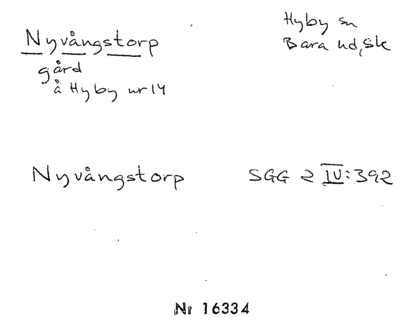 Nyvångstorp
gård
å Hyby nr 14
Hyby sn
Bara hd, Sk
Nyvångstorp SGG 2 IV:392
Nr 16334